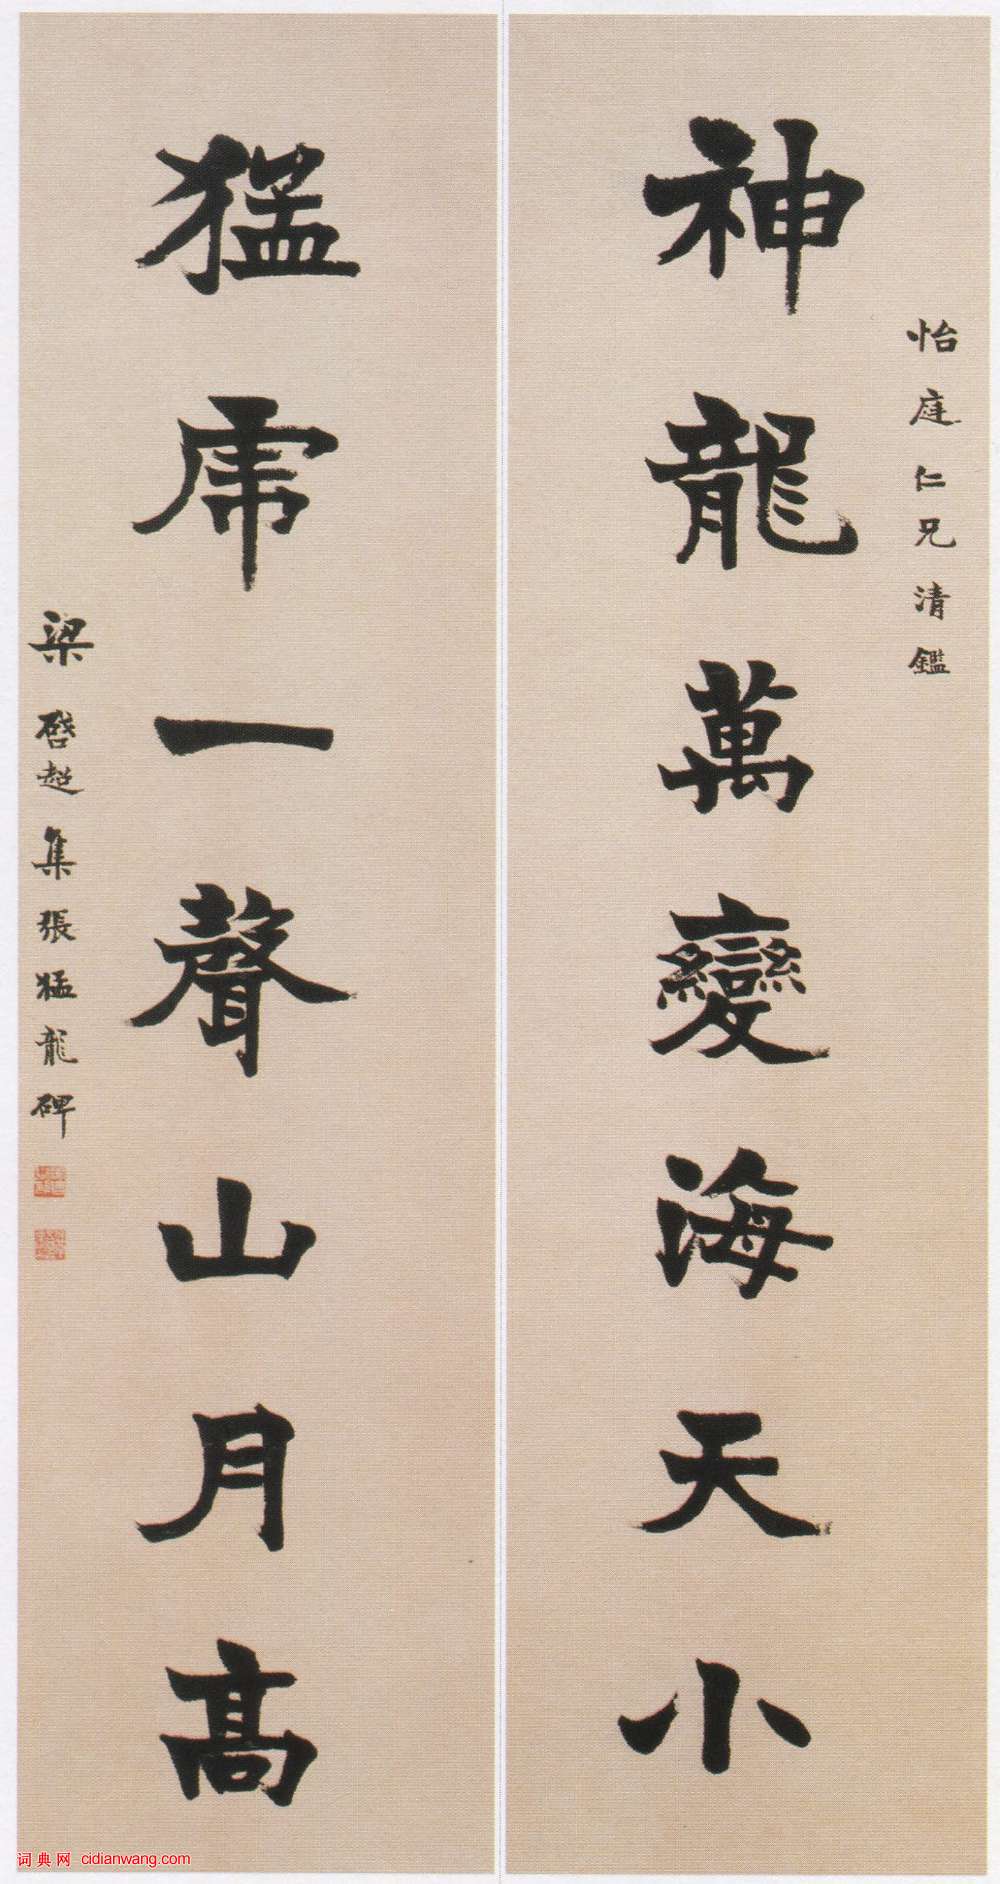 怡庭仁兄清鑑
神龍萬變海天小
猛虎一聲山月高
梁啓超集張猛龍碑
词典网 cidianwang.com